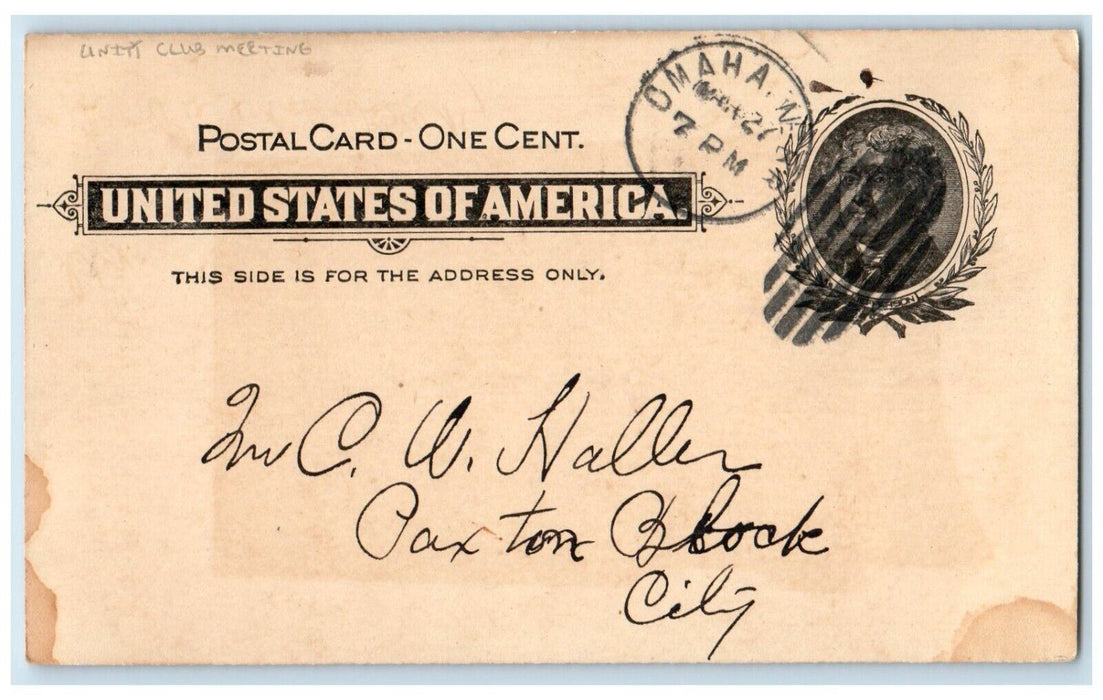 UNITY CLUB MEETING
OMAHA, N
MAR 27
7 PM
POSTAL CARD - ONE CENT.
UNITED STATES OF AMERICA.
THIS SIDE IS FOR THE ADDRESS ONLY.
Mr C. W. Haller
Paxton Block
City